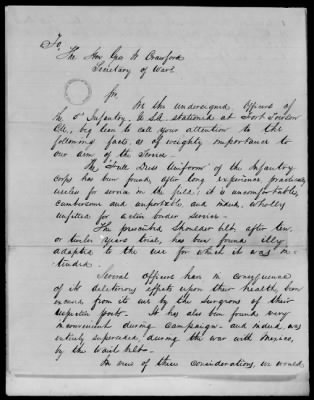 To,
The Hon Geo W Crawford
Secretary of War
Sir
We the undersigned Officers of
the 5th Infantry, U.S.A. stationed at Fort Towson
C.N., beg leave to call your attention to the
following facts, as of weighty importance to
our arm of the Service.
The Full Dress Uniform of the Infantry
corps has been found, after long experience, practically
useless for service in the field; it is uncomfortable,
cumbersome and unportable, and indeed, wholly
unfitted for active border service.
The prescribed shoulder belt, after ten
or twelve years trial, has been found illy
adapted to the use for which it was in-
tended.
Several officers have in consequence
of its deleterious effects upon their health, been
excused from its use by the Surgeons of their
respective posts. It has also been found very
inconvenient during Campaign and indeed was
entirely superseded, during the war with Mexico,
by the waist belt.
In view of these considerations, we would